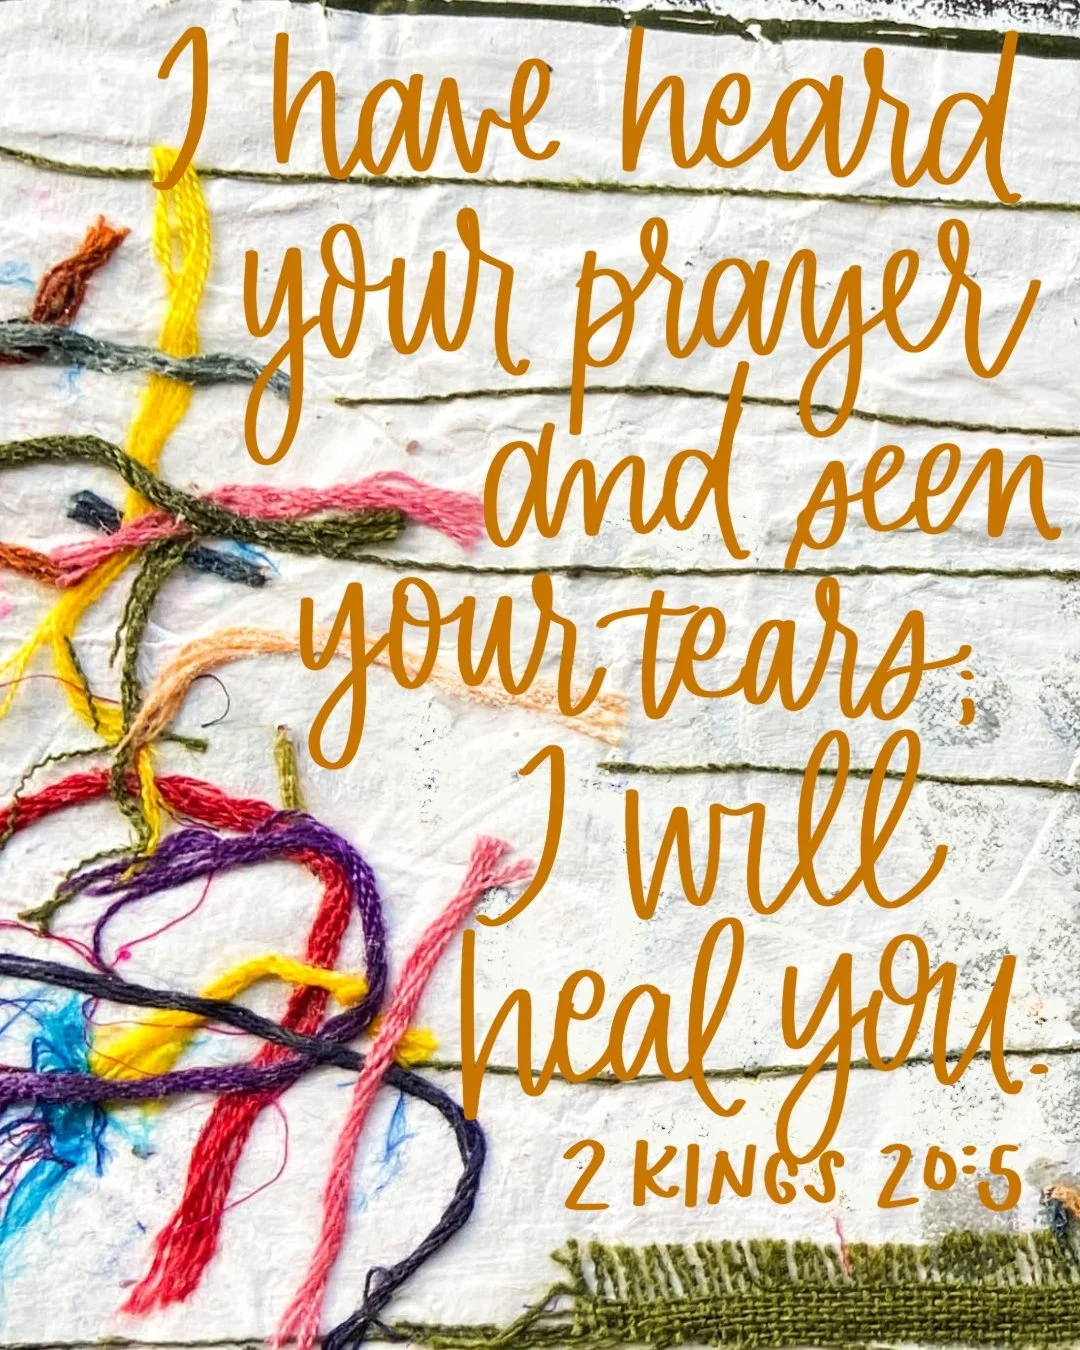 I have heard
your prayer
and seen
your tears;
I will
heal you.
2 KINGS 20:5